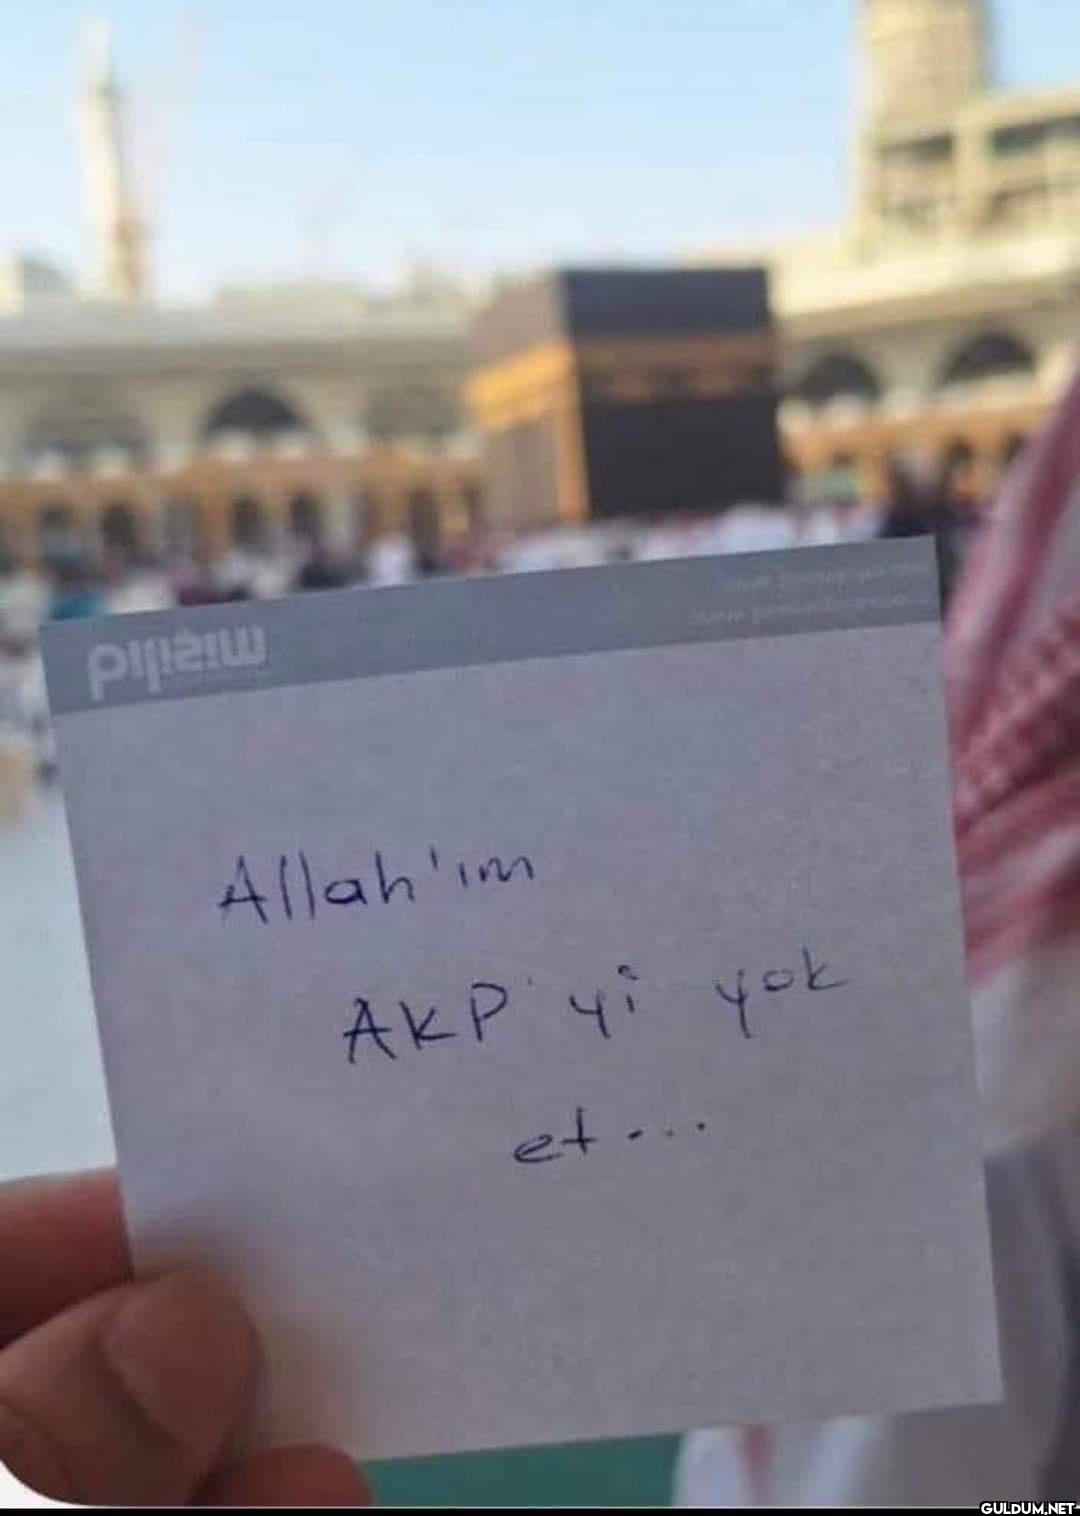 Allah'ım
AKP'yi yok
et....
GULDUM.NET